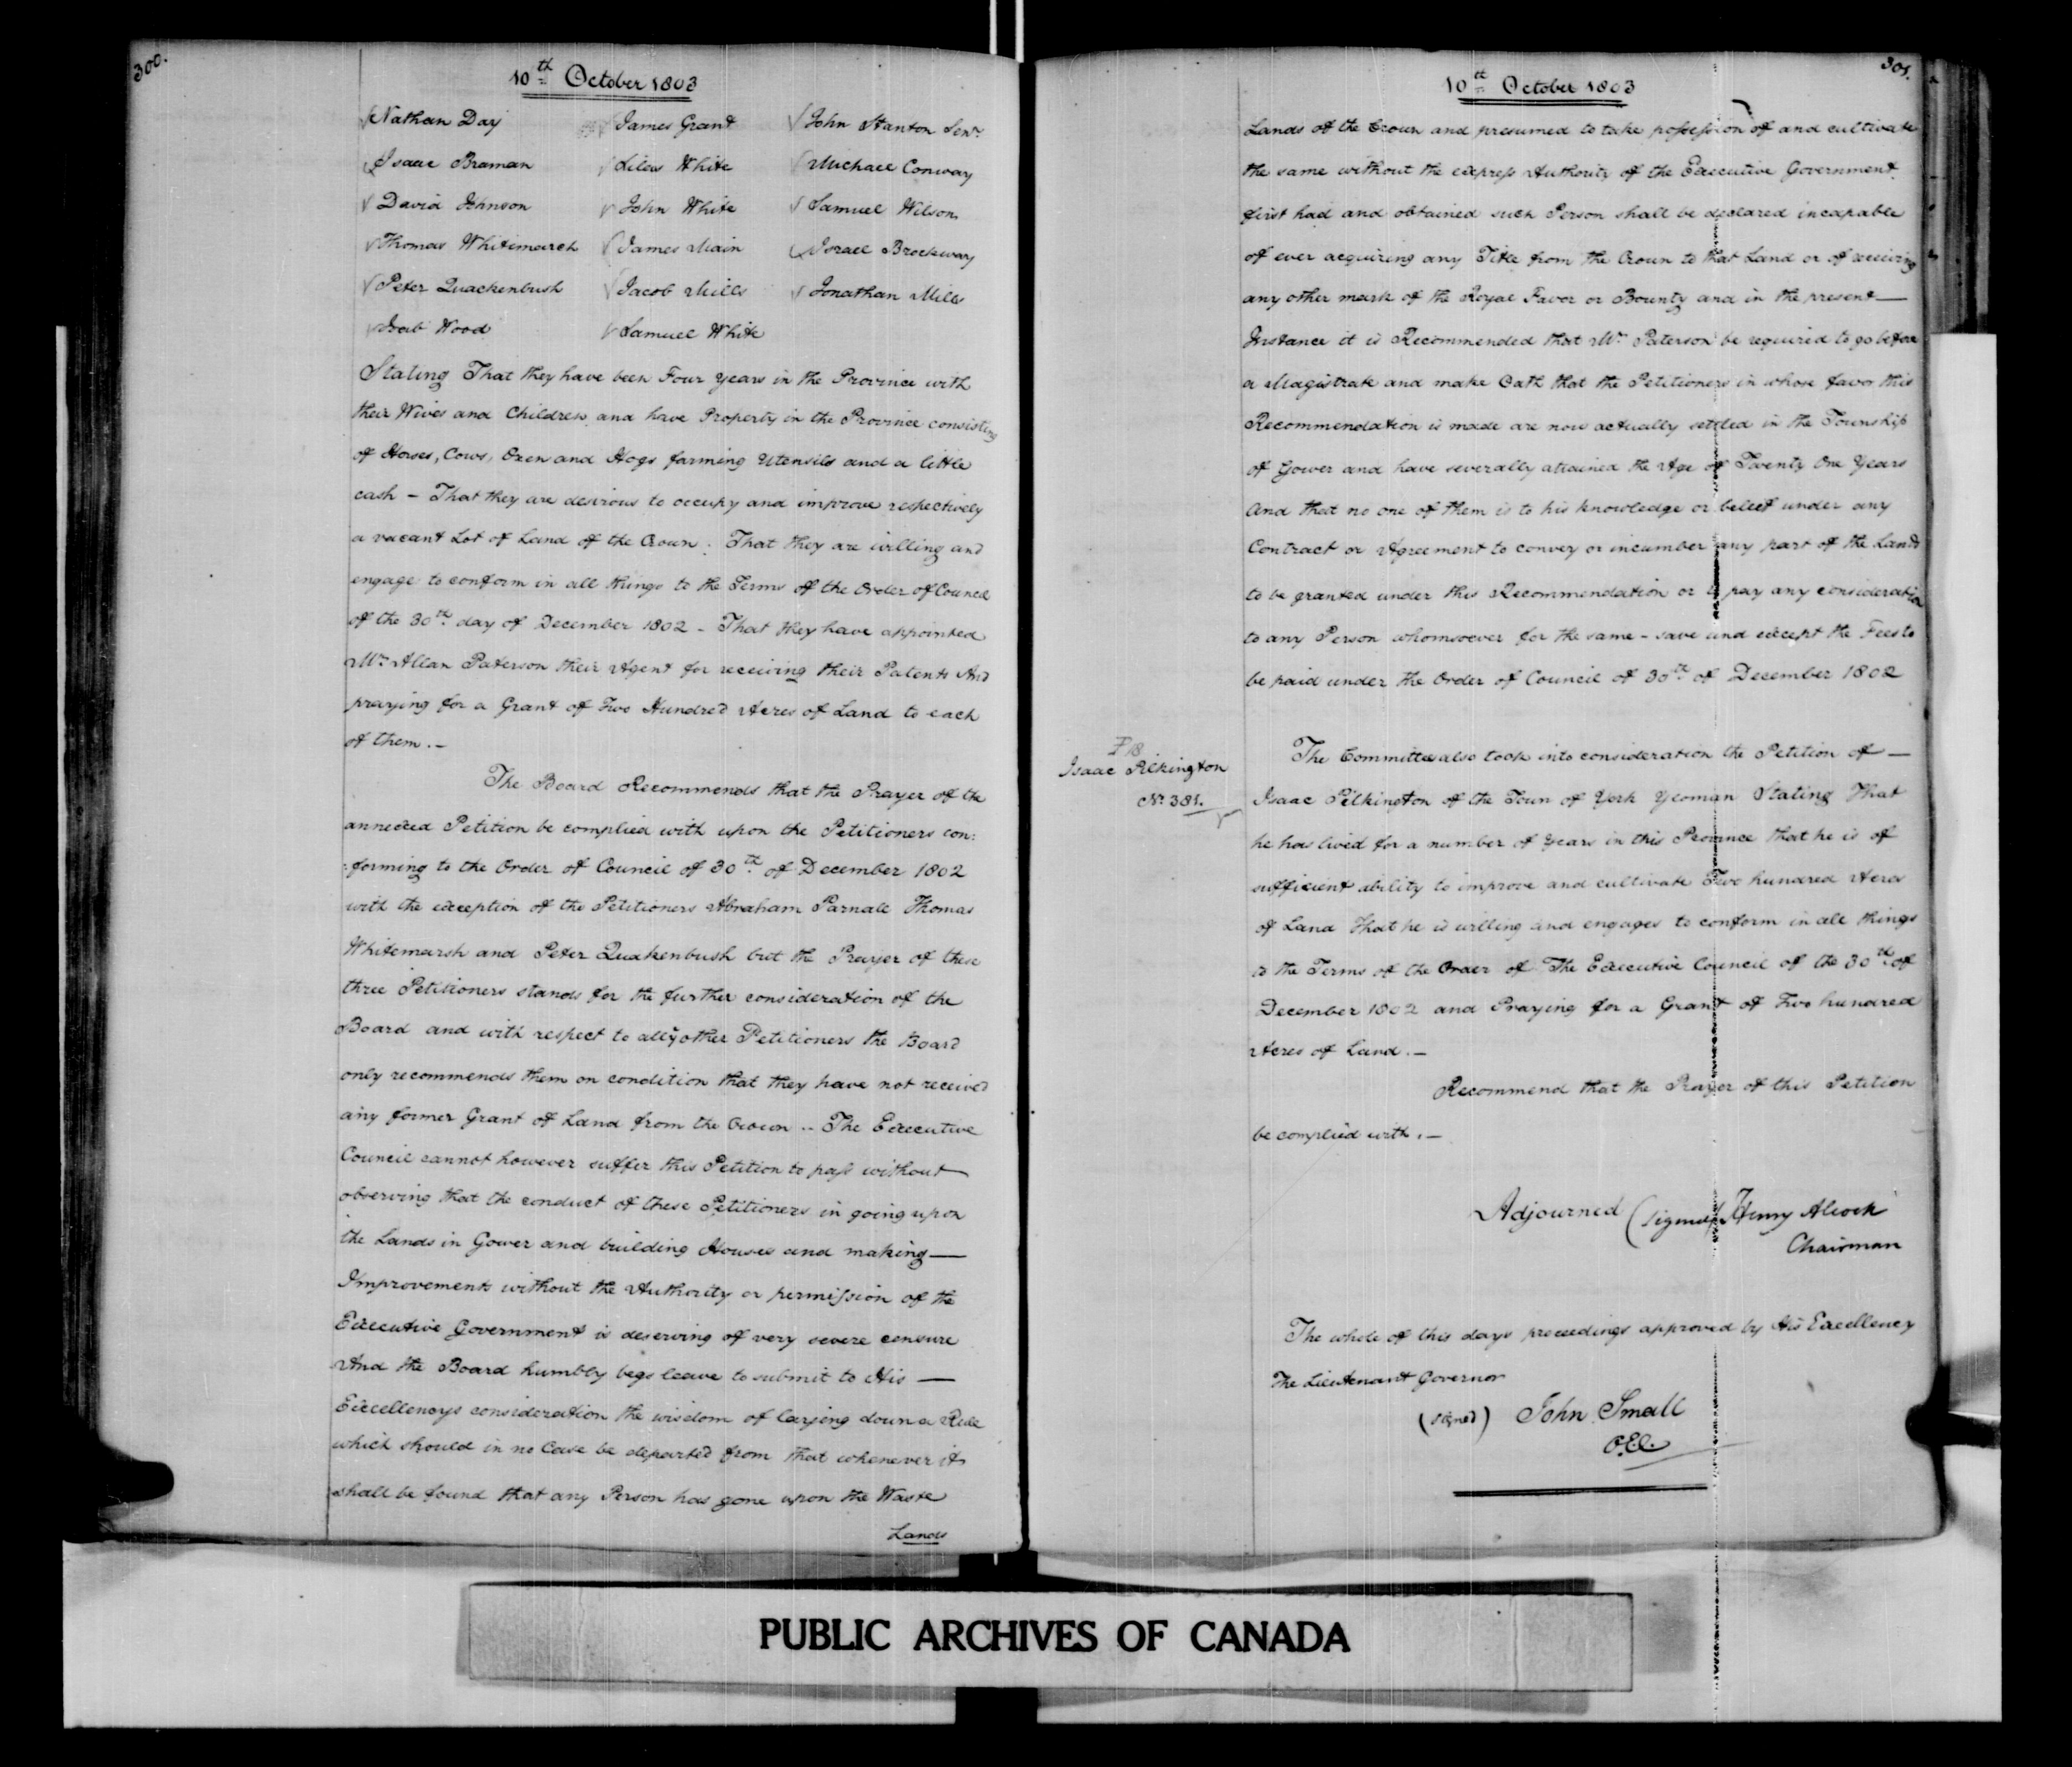 300.
10th October 1803
Nathan Day James Grant John Stanton Senr
Isaac Braman Silas White Michael Conway
David Johnson John White Samuel Wilson
Thomas Whitemarsh James Main Israel Brockway
Peter Quackenbush Jacob Mills Jonathan Mills
Job Wood Samuel White
Stating That they have been Four years in the Province with
their Wives and Children and have Property in the Province consisting
of Horses, Cows, Oxen and Hogs farming Utensils and a little
cash - That they are desirous to occupy and improve respectively
a vacant Lot of Land of the Crown. That they are willing and
engage to conform in all things to the Terms of the Order of Council
of the 30th day of December 1802 - That they have appointed
Mr Allan Paterson their Agent for receiving their Patents And
praying for a Grant of Two Hundred Acres of Land to each
of them. -
The Board Recommends that the Prayer of the
annexed Petition be complied with upon the Petitioners con:
:forming to the Order of Council of 30th of December 1802
with the exception of the Petitioners Abraham Parnale Thomas
Whitemarsh and Peter Quakenbush but the Prayer of these
three Petitioners stands for the further consideration of the
Board and with respect to all ye other Petitioners the Board
only recommends them on condition that they have not received
any former Grant of Land from the Crown .. The Executive
Council cannot however suffer this Petition to pass without
observing that the conduct of these Petitioners in going upon
the Lands in Gower and building Houses and making —
Improvements without the Authority or permission of the
Executive Government is deserving of very severe censure
And the Board humbly begs leave to submit to His —
Excellencys consideration the wisdom of laying down a Rule
which should in no Case be departed from that whenever it
shall be found that any Person has gone upon the Waste
Lands
301.
10th October 1803
Lands of the Crown and presumed to take possession of and cultivate
the same without the express Authority of the Executive Government
first had and obtained such Person shall be declared incapable
of ever acquiring any Title from the Crown to that Land or of receiving
any other mark of the Royal Favor or Bounty and in the present —
Instance it is Recommended that Mr Paterson be required to go before
a Magistrate and make Oath that the Petitioners in whose favor this
Recommendation is made are now actually settled in the Township
of Gower and have severally attained the Age of Twenty One Years
And that no one of them is to his knowledge or beleef under any
Contract or Agreement to convey or incumber any part of the Lands
to be granted under this Recommendation or to pay any consideration
to any Person whomsoever for the same - save and except the Fees to
be paid under the Order of Council of 30th of December 1802
Isaac Pilkington
No 381.
The Committee also took into consideration the Petition of —
Isaac Pilkington of the Town of York Yeoman Stating That
he has lived for a number of Years in this Province that he is of
sufficient ability to improve and cultivate Two hundred Acres
of Land That he is willing and engages to conform in all things
to the Terms of the Order of The Executive Council of the 30th of
December 1802 and Praying for a Grant of Two hundred
Acres of Land. -
Recommend that the Prayer of this Petition
be complied with. -
Adjourned (signed) Henry Alcock
Chairman
The whole of this days proceedings approved by His Excellency
The Lieutenant Governor
(signed) John Small
C.E.C.
PUBLIC ARCHIVES OF CANADA